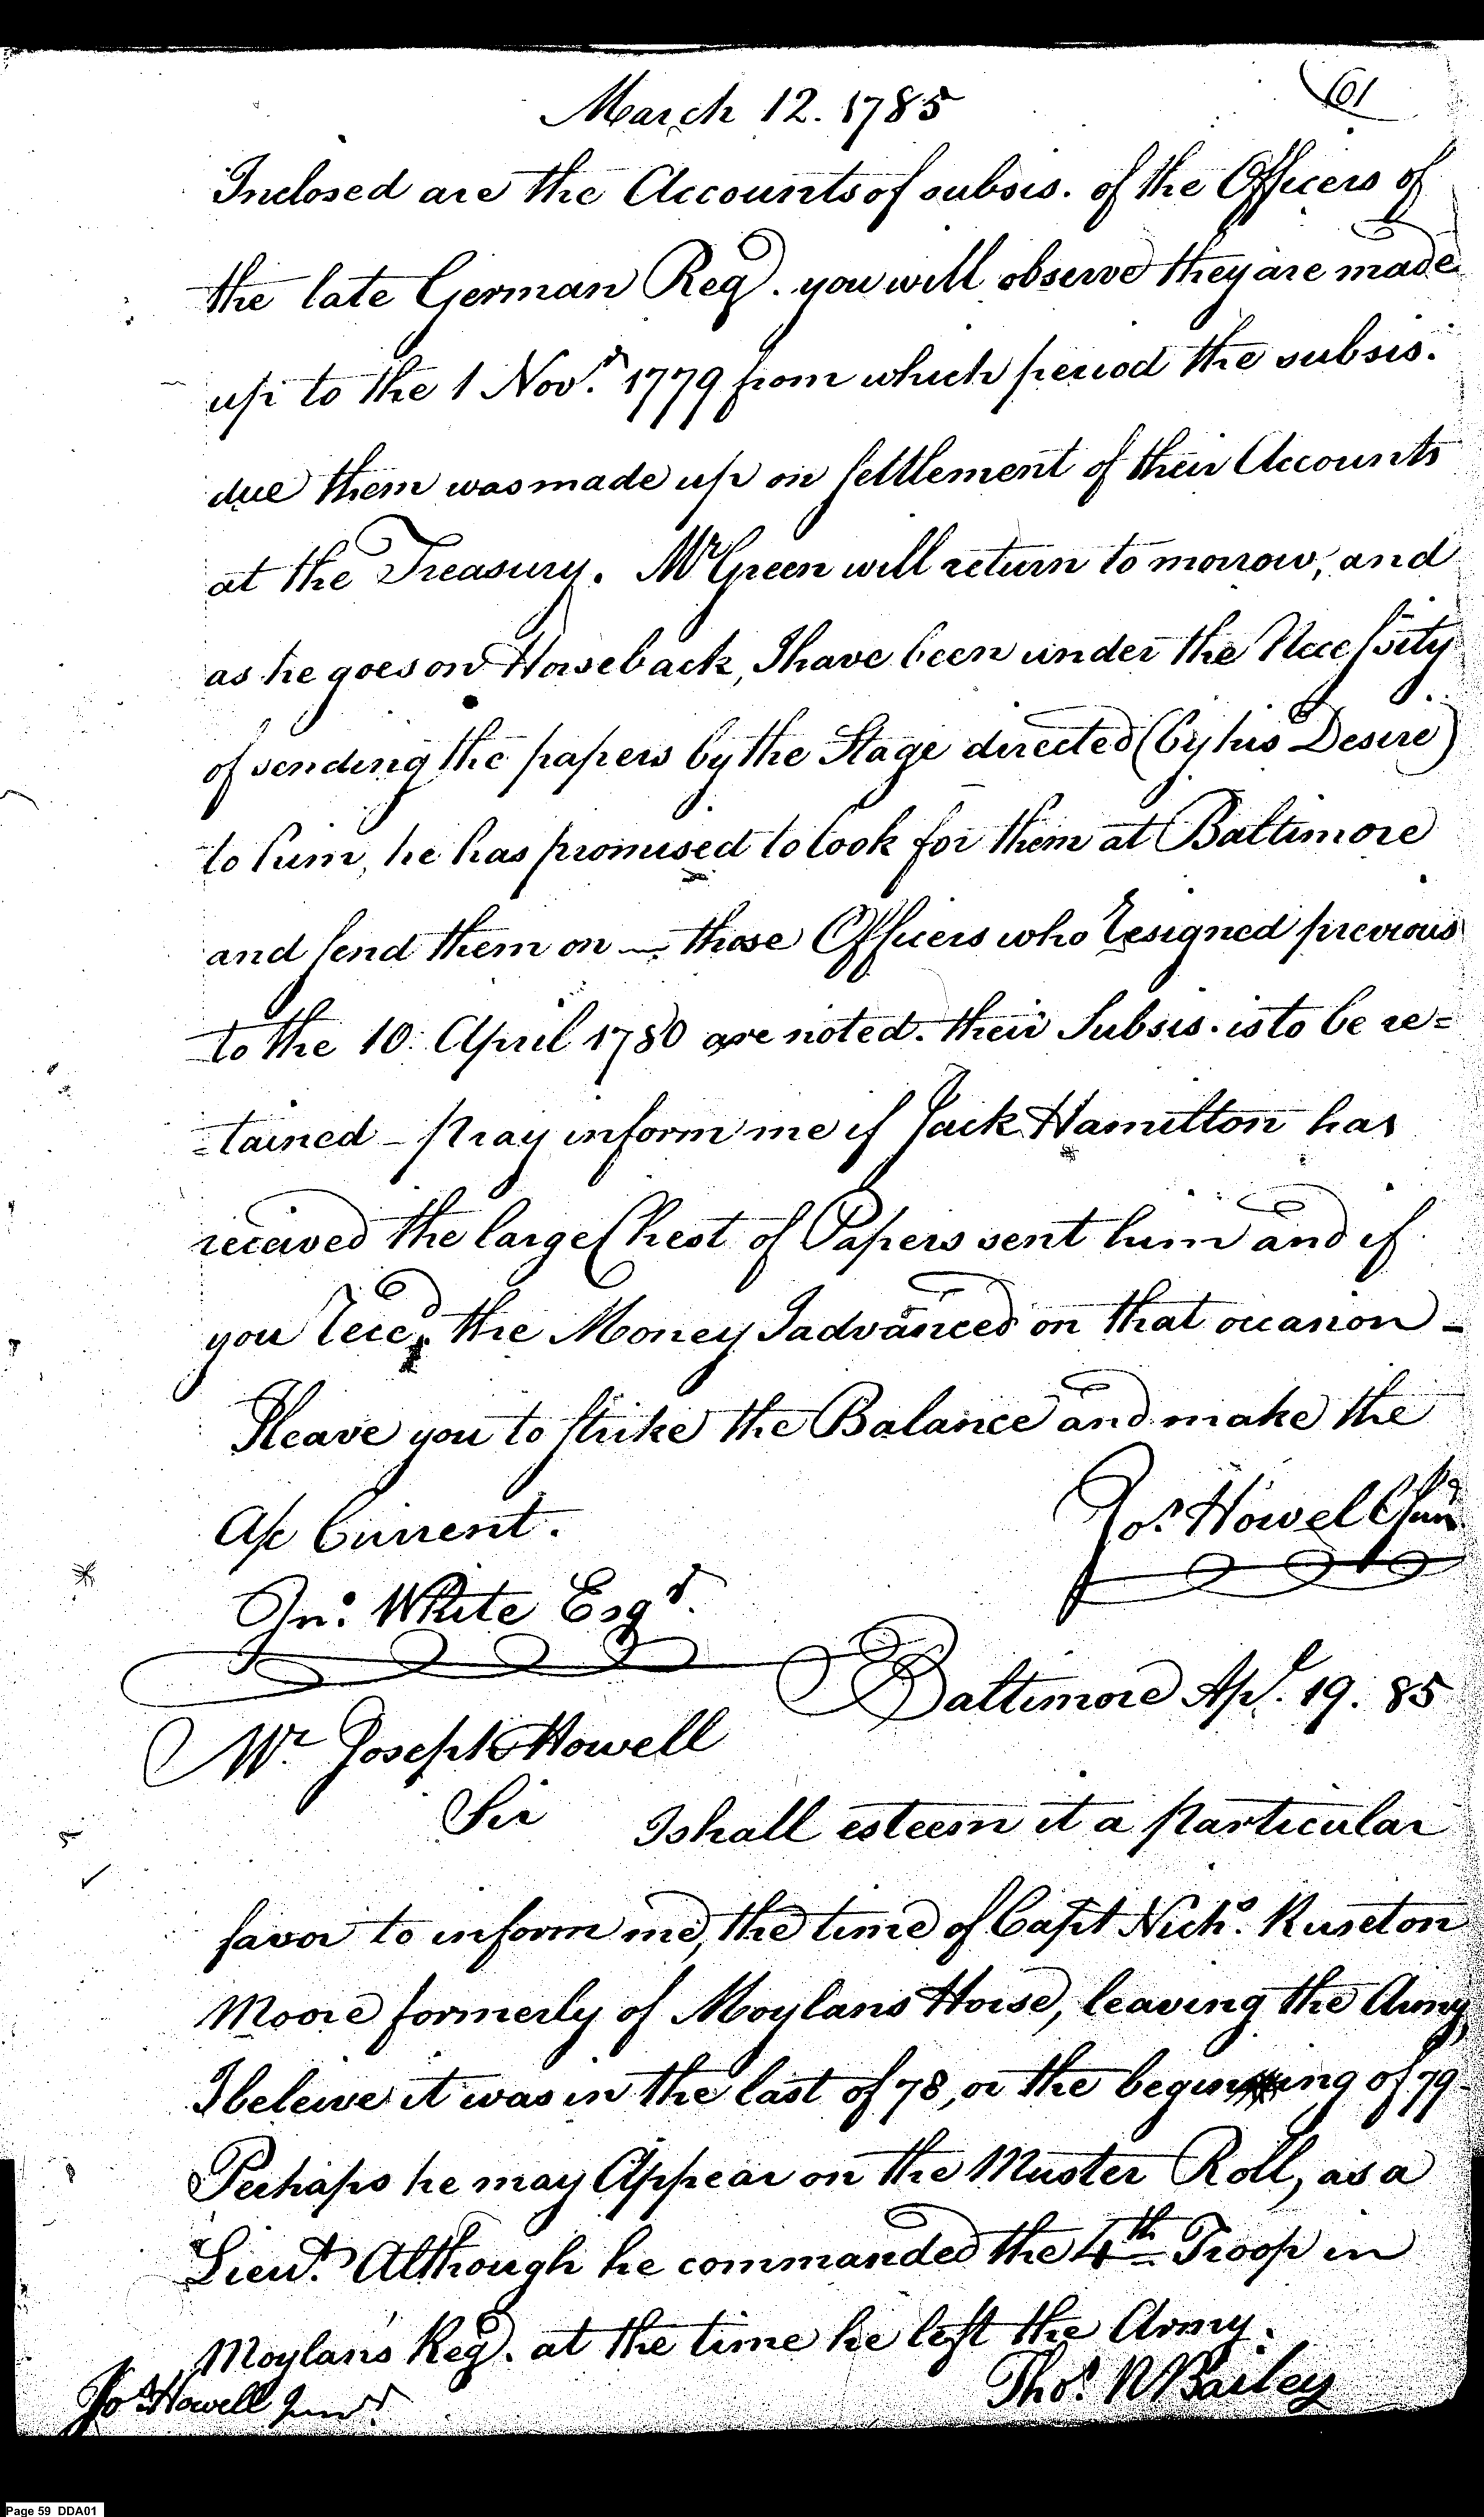 61
March 12. 1785
Inclosed are the Accounts of subsis. of the Officers of
the late German Regd. you will observe they are made
up to the 1 Novr. 1779 from which period the subsis.
due them was made up on settlement of their Accounts
at the Treasury. Mr Green will return to morrow, and
as he goes on Horseback, I have been under the Necessity
of sending the papers by the Stage directed (by his Desire)
to him, he has promised to look for them at Baltimore
and send them on — those Officers who Resigned previous
to the 10. April 1780 are noted. their Subsis. is to be re=
=tained - pray inform me if Jack Hamilton has
received the large Chest of Papers sent him and if
you Recd. the Money I advanced on that occasion -
I leave you to strike the Balance and make the
A/c Current.
Jos. Howell Jun
Jno. White Esqr.
Baltimore Apl. 19. 85
Mr. Joseph Howell
Sir I shall esteem it a particular
favor to inform me, the time of Capt Nichs. Ruxton
Moore formerly of Moylans Horse, leaving the Army
I beleive it was in the last of 78, or the beginning of 79
Perhaps he may Appear on the Muster Roll, as a
Lieut. Although he commanded the 4th Troop in
Moylans Regd. at the time he left the Army.
Thos. R Bailey
Jos. Howell Junr.
Page 59 DDA01